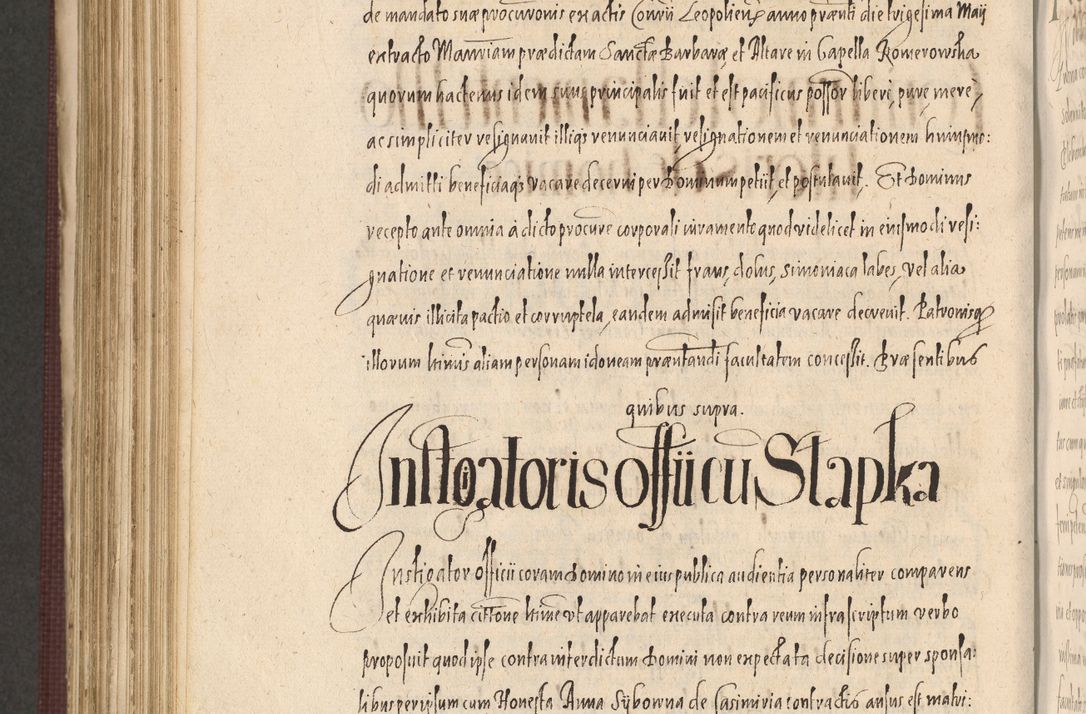 de mandato suæ procuronis ex actis Consrii Leopolien anno prænti die trigesima Maij
extracto Mansriam prædictam Sanctæ Barbaræ, et Altare in Capella Romerowska
quorum hactenus idem suus principalis fuit et est pacificus possor libere, pure, mere,
ac simpliciter resignauit illisq renunciauit resignationem et renunciationem huiusmo:
di admitti beneficiaq vacare decerni per Dominum petiit, et postulauit. Et Dominus
recepto ante omnia à dicto procure corporali iuramento quod videlicet in eiusmodi resi:
gnatione et renunciatione nulla intercessit fraus, dolus, simoniaca labes, vel alia
quæuis illicita pactio et corruptela, eandem admisit beneficia vacare decreuit. Patronisq
illorum ltimis aliam personam idoneam præntandi facultatem concessit. Præsentibus
quibus supra.
Instigatoris officii cu Stapka
Instigator Officii coram Domino in eius publica audientia personaliter comparens
et exhibita cittone ltime vt apparebat executa contra reum infrascriptum verbo
proposuit quod ipse contra interdictum Domini non expectata decisione super sponsa:
libus per ipsum cum Honesta Anna Sybowna de Casimiria contractis ausus est matri: